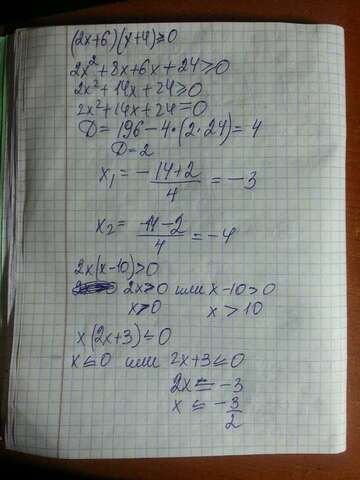 (2x+6)(x+4)≥0
2x²+8x+6x+24≥0
2x²+14x+24≥0
2x²+14x+24=0
D=196-4*(2*24)=4
D=2
x₁=-14+2/4=-3
x₂=-14-2/4=-4
2x(x-10)>0
2x>0 или x-10>0
x>0 x>10
x(2x+3)≤0
x≤0 или 2x+3≤0
2x≤-3
x≤-3/2